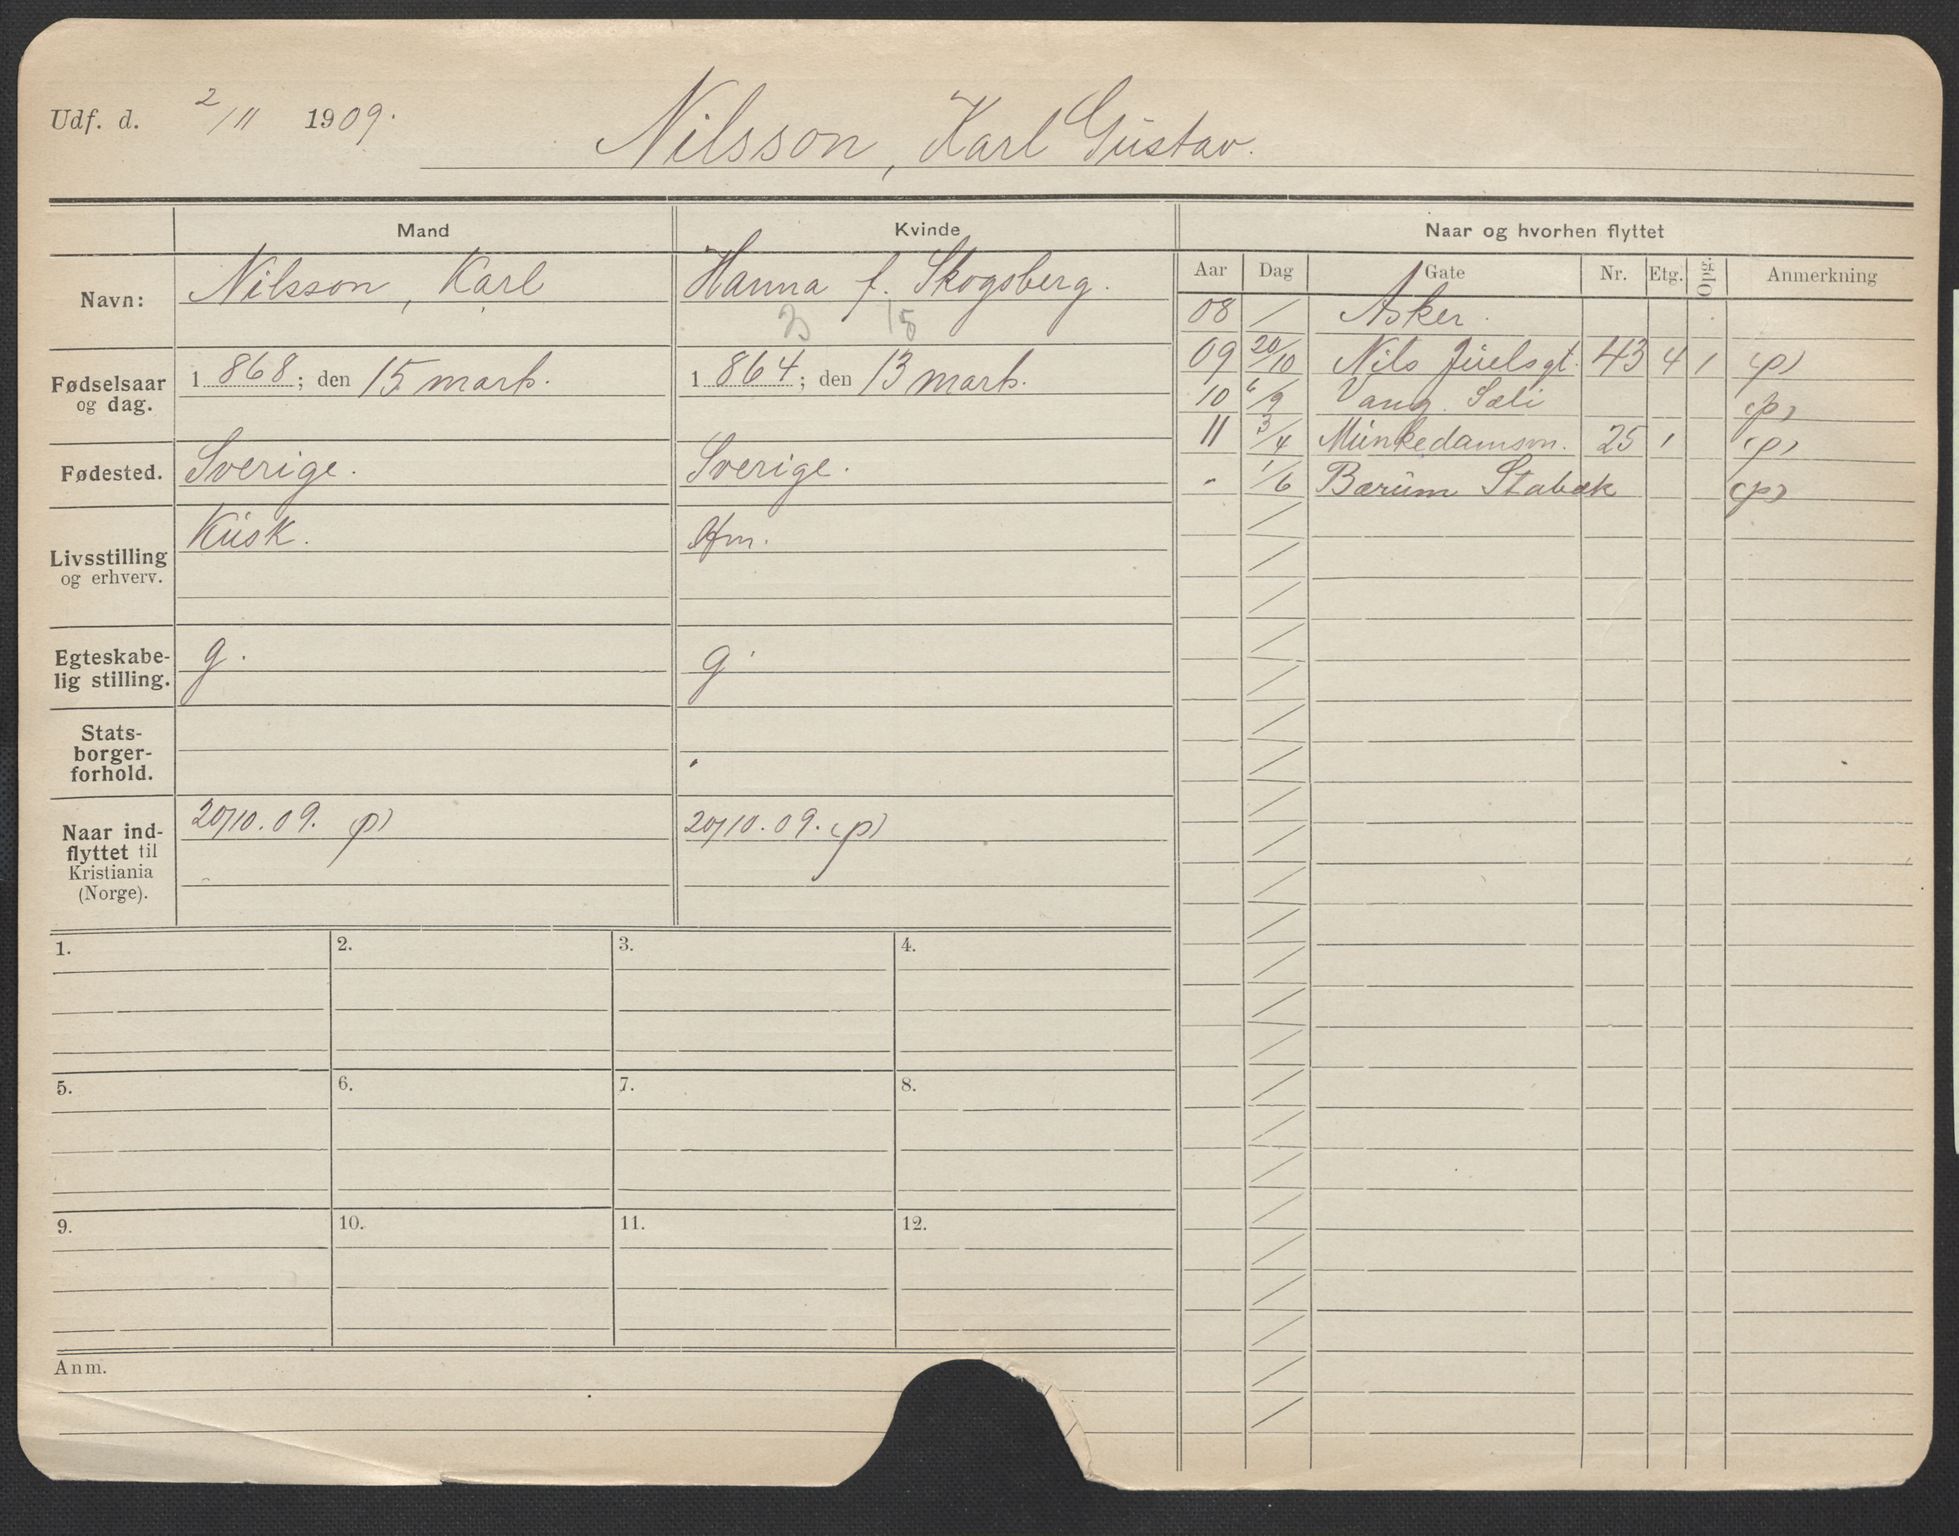 Udf. d. 2/11 1909.
Nilsson, Karl Gustav.
Mand
Kvinde
Naar og hvorhen flyttet
Aar Dag Gate Nr. Etg. Opg. Anmerkning
Navn: Nilsson, Karl
Hanna f. Skogsberg.
Fødselsaar og dag. 1868; den 15 marts.
1864; den 13 marts.
Fødested. Sverige.
Sverige.
Livsstilling og erhverv. Kusk.
Hm.
Egteskabe-
lig stilling. g.
g.
Stats-
borger-
forhold.
Naar ind-
flyttet til
Kristiania
(Norge).
20/10.09. (p)
20/10.09. (p)
08 / Asker.
09 20/10 Nils Juelsgt. 43 4 1 (p)
10 6/9 Vang Sæli (p)
11 3/4 Munkedamsvn. 25 1 (p)
" 1/6 Bærum Stabæk (p)
1. 2. 3. 4.
5. 6. 7. 8.
9. 10. 11. 12.
Anm.